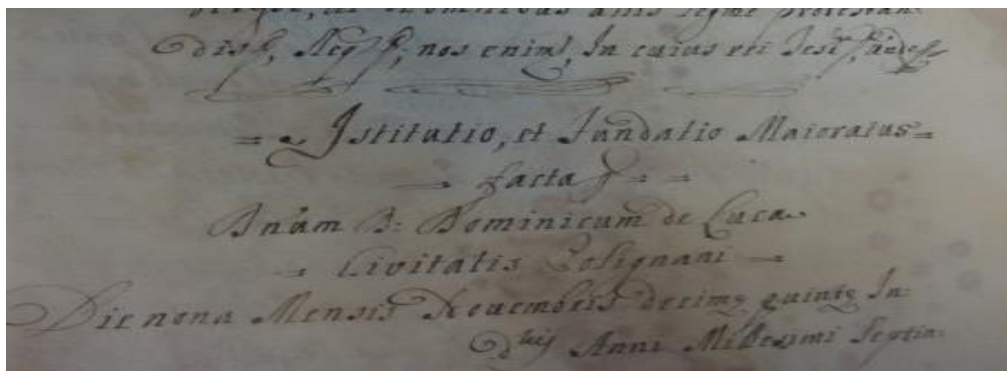 omnibus aliis
nos enim, In cuius rei
= Istitutio, et fundatio Maioratus =
facta
Dominicum de Luca
Civitatis Polignani
Die nona Mensis Novembris decimę quintę In:
Anni Millesimi Septin: